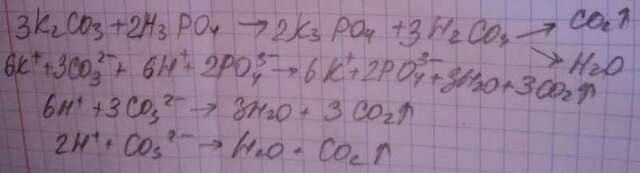 3K₂CO₃+2H₃PO₄→2K₃PO₄+3H₂CO₃→CO₂↑
→H₂O
6K⁺+3CO₃²⁻+6H⁺+2PO₄³⁻→6K⁺+2PO₄³⁻+3H₂O+3CO₂↑
6H⁺+3CO₃²⁻→3H₂O+3CO₂↑
2H⁺+CO₃²⁻→H₂O+CO₂↑